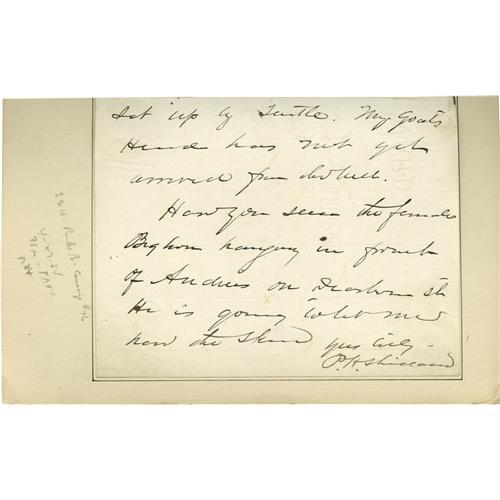 set up by Tuttle. My Goats
Head has not yet
arrived from
Have you seen the female
Bighorn hanging in front
of Andrews on Dearborn St.
He is going to let me
have the Skin yours truly
P. H. Sheridan